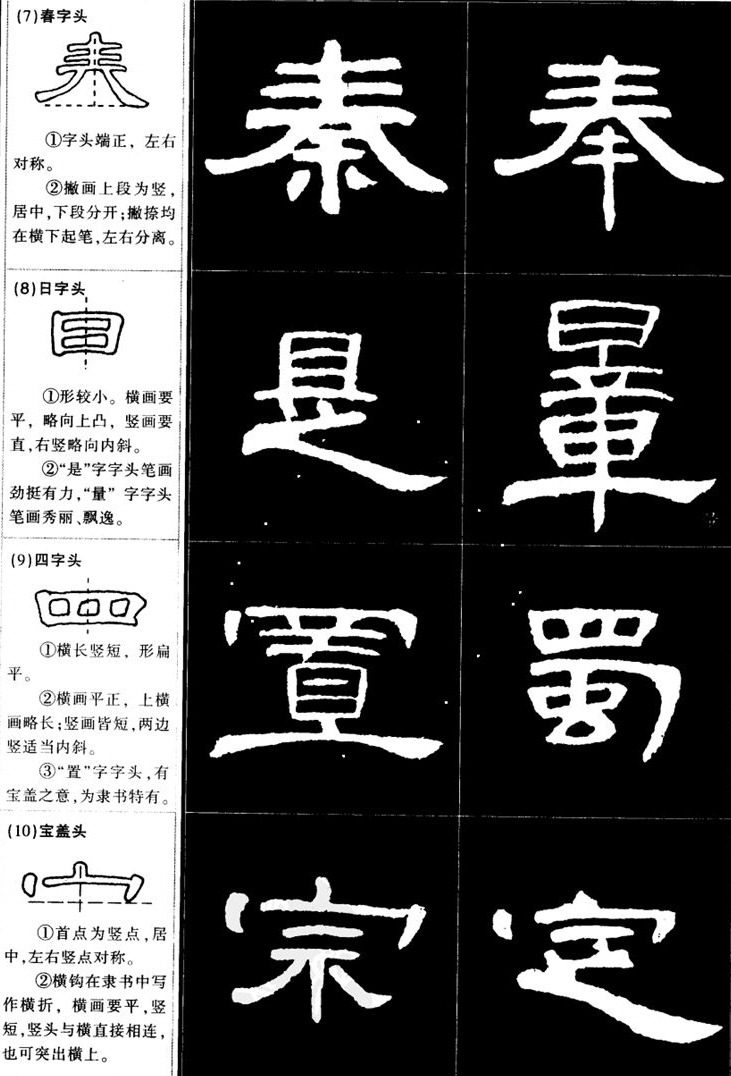 (7)春字头
①字头端正，左右
对称。
②撇画上段为竖，
居中，下段分开；撇捺均
在横下起笔，左右分离。
秦 奉
(8)日字头
①形较小。横画要
平，略向上凸，竖画要
直，右竖略向内斜。
②“是”字字头笔画
劲挺有力，“量”字字头
笔画秀丽、飘逸。
是 量
(9)四字头
①横长竖短，形扁
平。
②横画平正，上横
画略长；竖画皆短，两边
竖适当内斜。
③“置”字字头，有
宝盖之意，为隶书特有。
置 蜀
(10)宝盖头
①首点为竖点，居
中，左右竖点对称。
②横钩在隶书中写
作横折，横画要平，竖
短，竖头与横直接相连，
也可突出横上。
宗 定